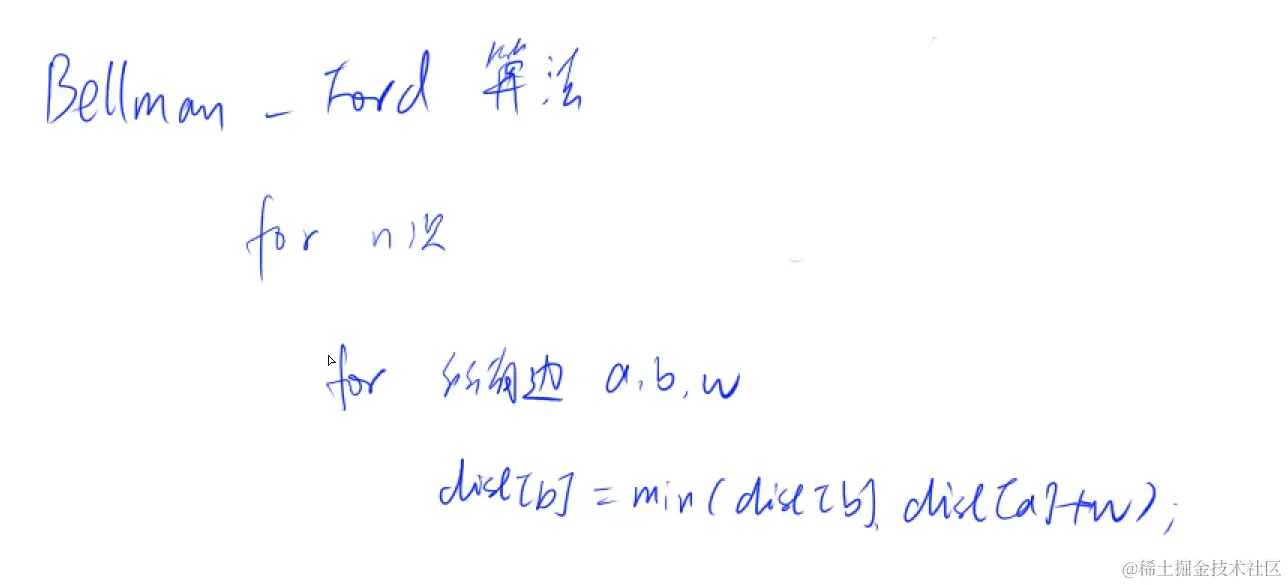 Bellman - Ford 算法
for n次
for 所有边 a,b,w
dist[b] = min(dist[b], dist[a]+w);
@稀土掘金技术社区